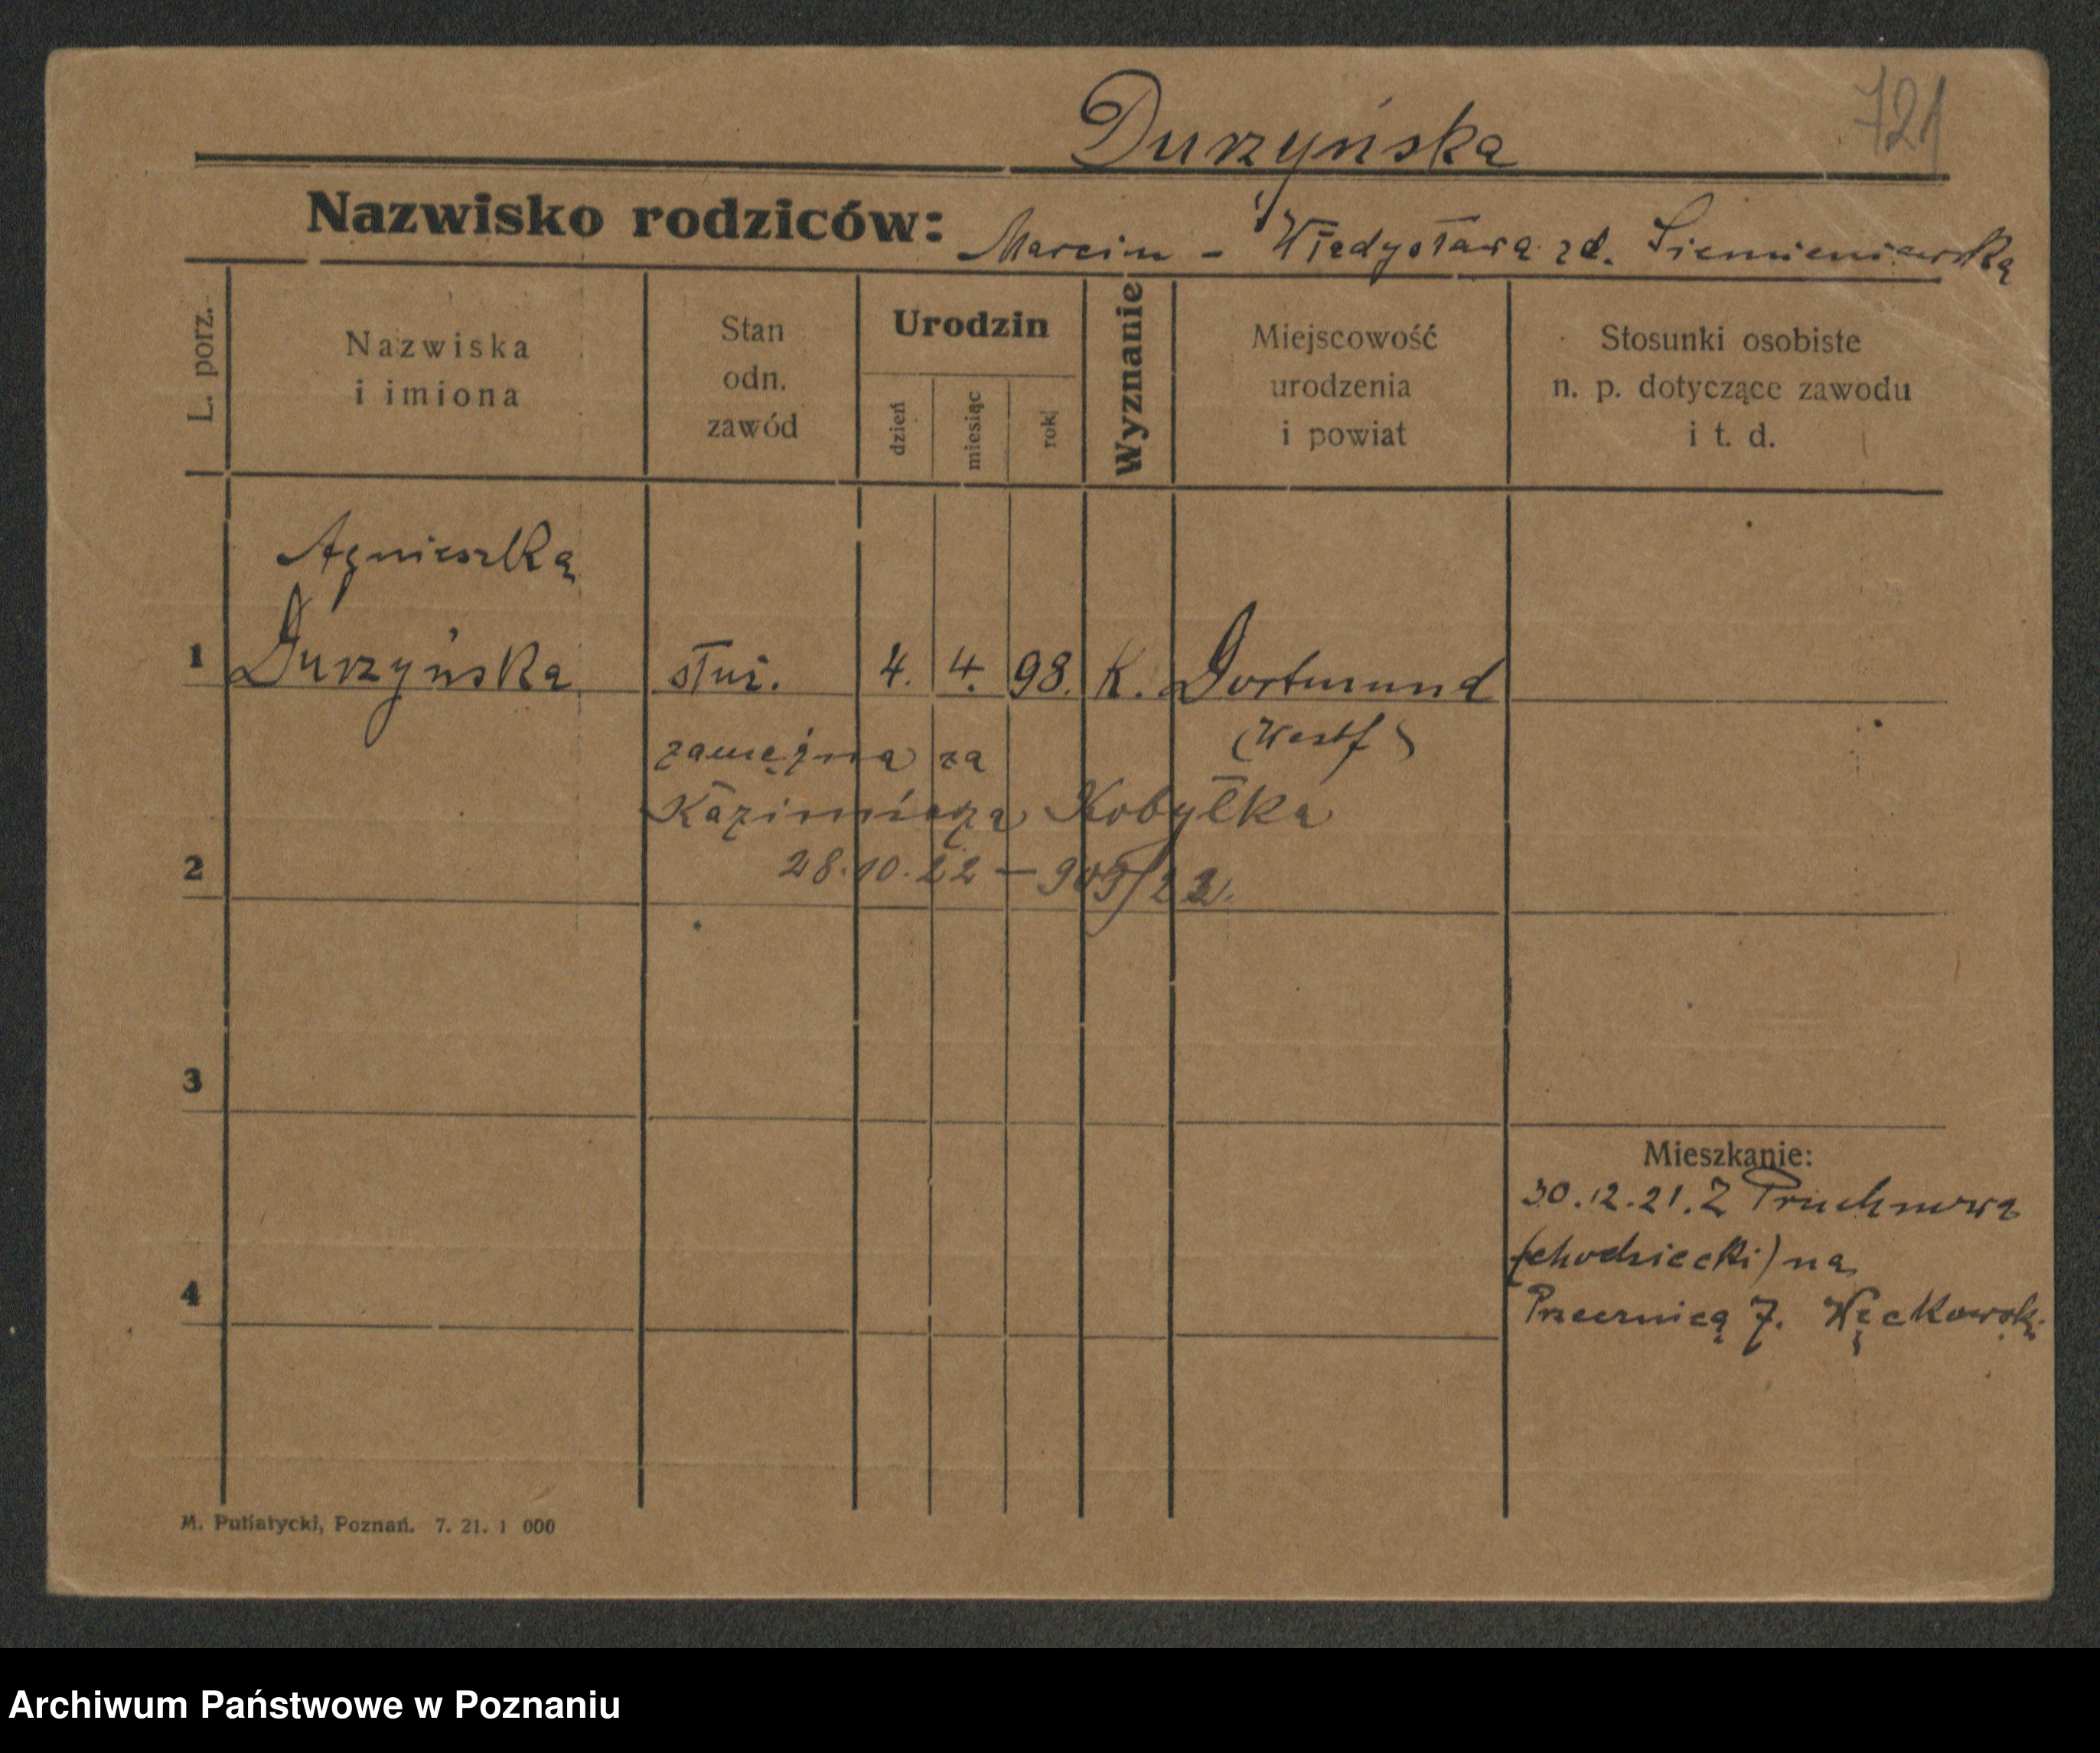 721
Durzyńska
Nazwisko rodziców: Marcin - Władysława zd. Siemieniewska
L. porz.
Nazwiska i imiona
Stan odn. zawód
Urodzin
dzień
miesiąc
rok
Wyznanie
Miejscowość urodzenia i powiat
Stosunki osobiste n. p. dotyczące zawodu i t. d.
Agnieszka
1 Durzyńska służ. 4. 4. 98. K. Dortmund
(Westf)
zamężna za
Kazimierza Kobyłka
2
28.10.22 — 909/22.
3
Mieszkanie:
30.12.21. Z Pruchnowa
(chodziecki) na
4
Przecznicą 7. Węckowski
M. Putiatycki, Poznań. 7. 21. 1 000
Archiwum Państwowe w Poznaniu